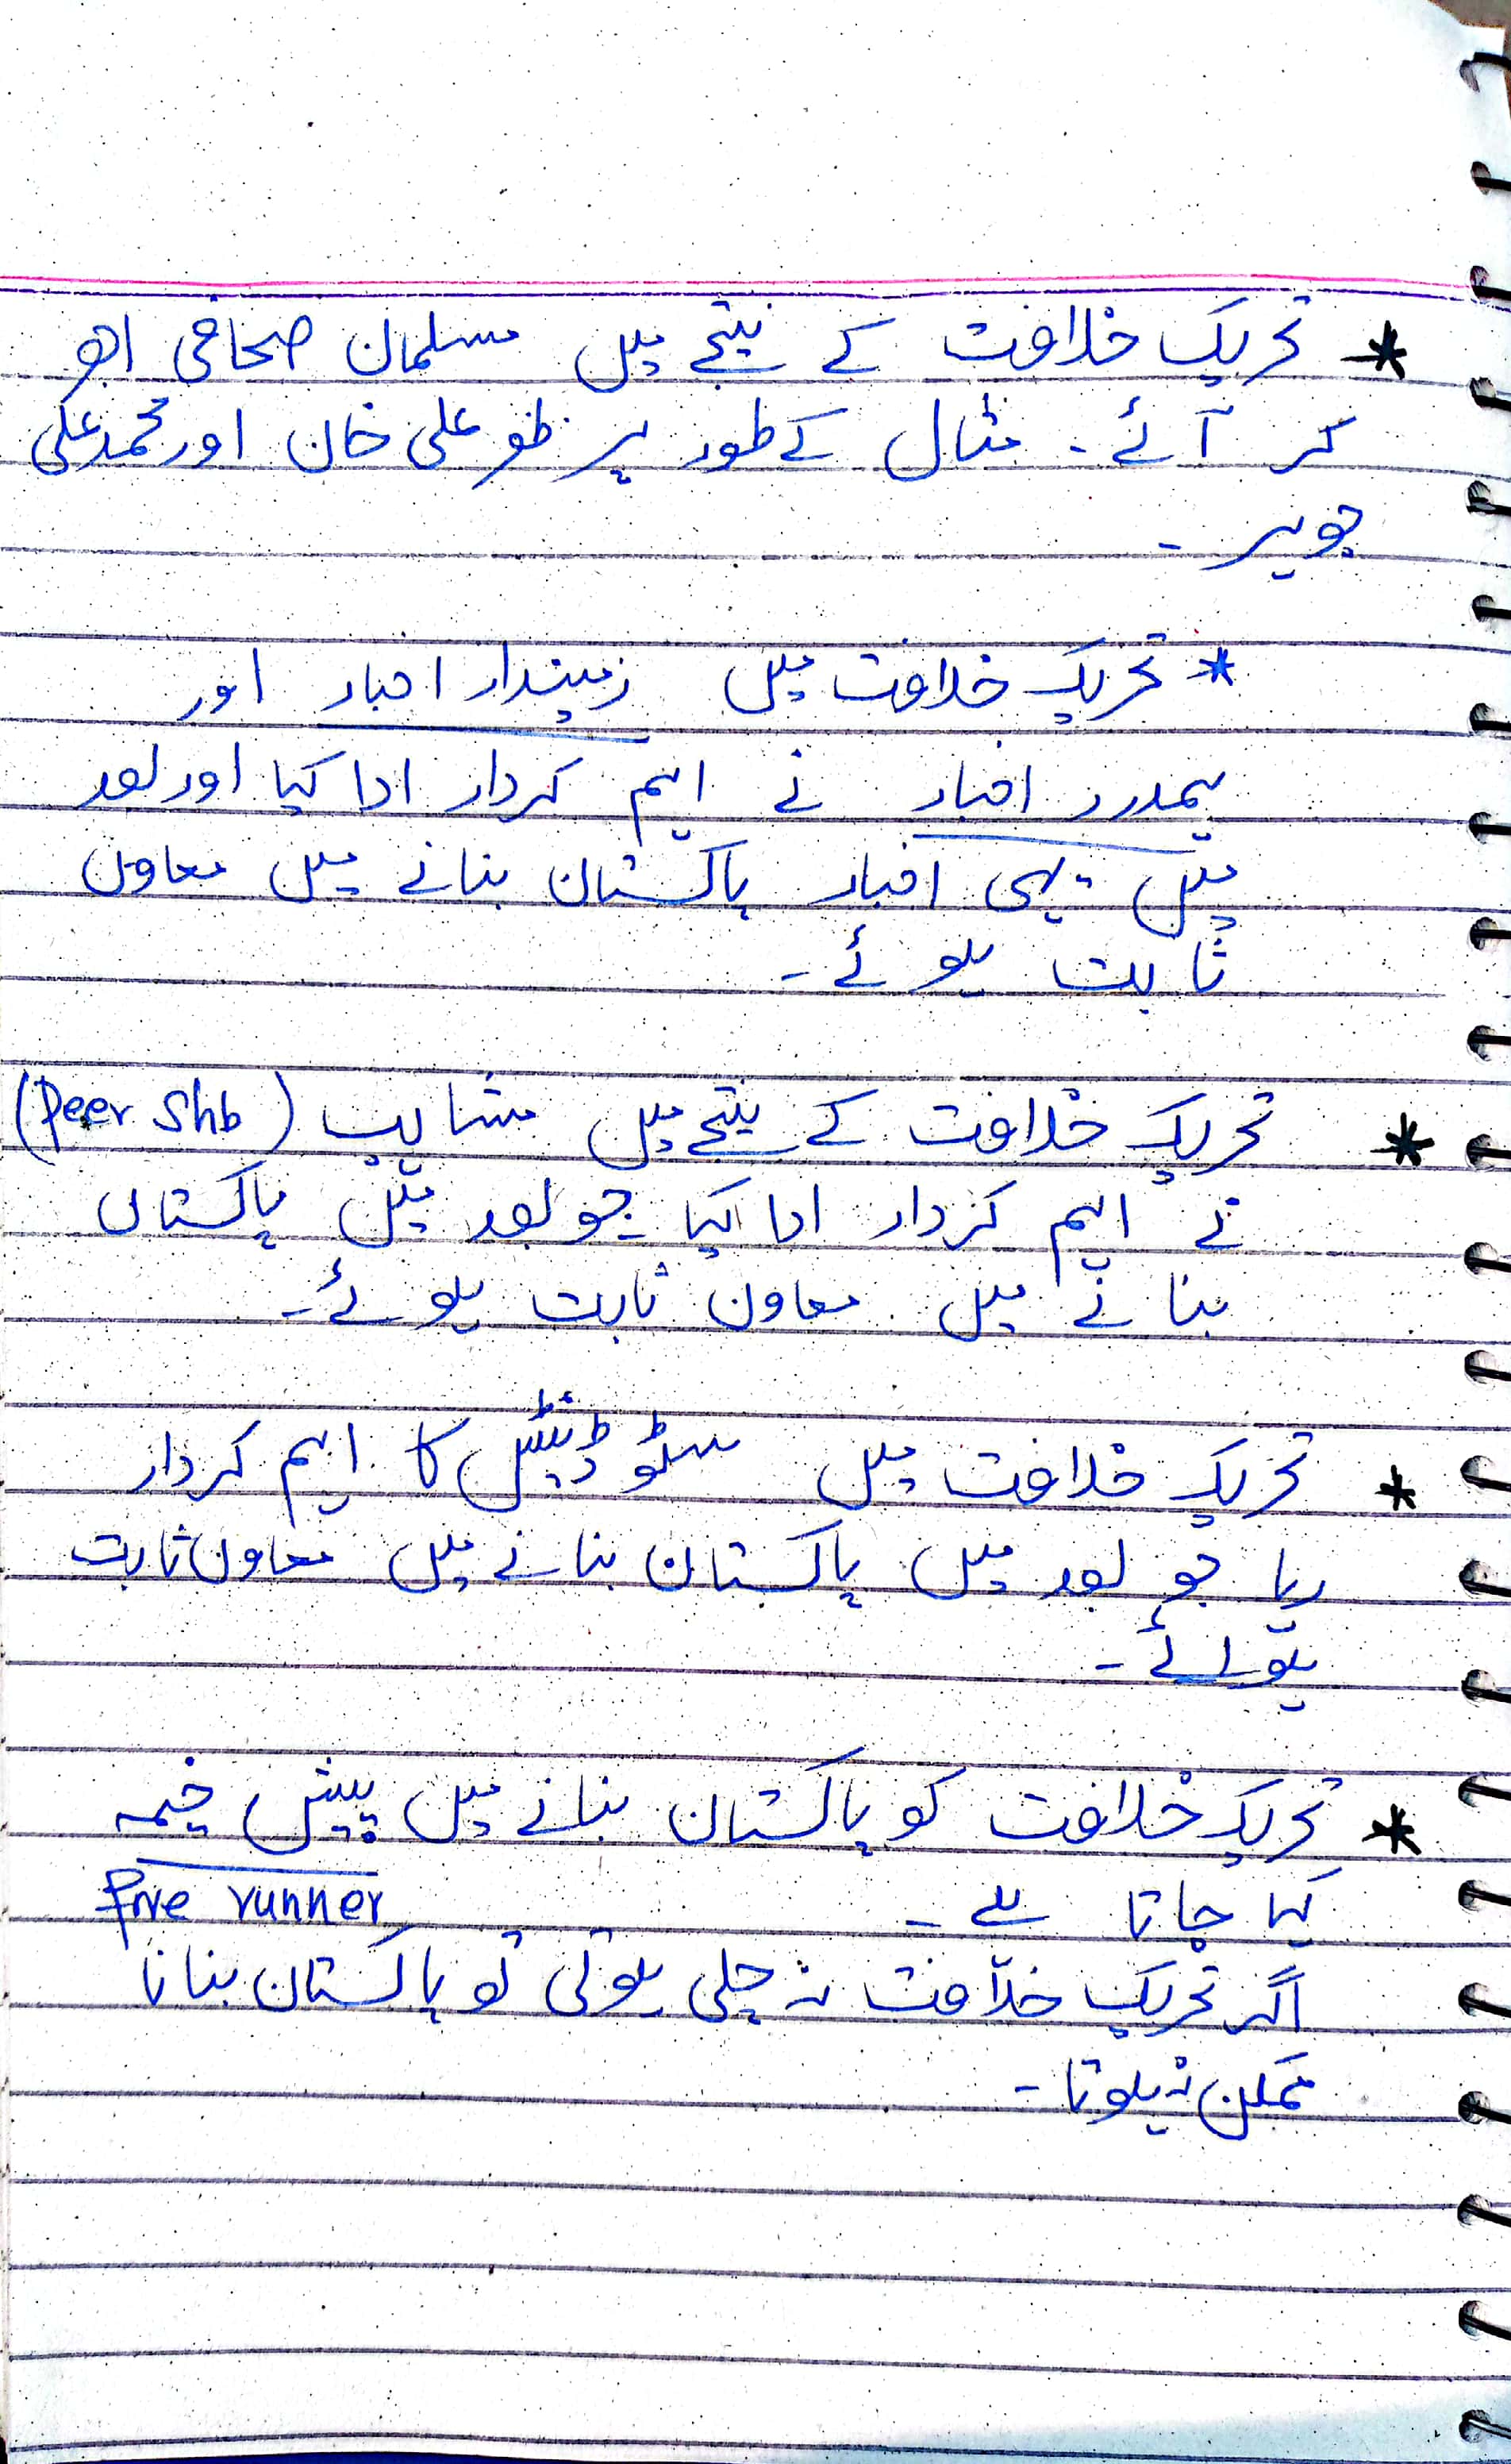 * تحریک خلافت کے نتیجے میں مسلمان صحافی ابھر
کر آئے۔ مثال کے طور پر ظفر علی خان اور محمد علی
جوہر ۔
* تحریک خلافت میں زمیندار اخبار اور
ہمدرد اخبار نے اہم کردار ادا کیا اور بعد
میں یہی اخبار پاکستان بنانے میں معاون
ثابت ہوئے۔
* تحریک خلافت کے نتیجے میں مشایخ (Peer Shb)
نے اہم کردار ادا کیا جو بعد میں پاکستان
بنانے میں معاون ثابت ہوئے۔
* تحریک خلافت میں سٹوڈنٹس کا اہم کردار
رہا جو بعد میں پاکستان بنانے میں معاون ثابت
ہوئے۔
* تحریک خلافت کو پاکستان بنانے میں پیش خیمہ
کہا جاتا ہے۔ runner
اگر تحریک خلافت نہ چلی ہوتی تو پاکستان بنانا
ممکن نہ ہوتا۔